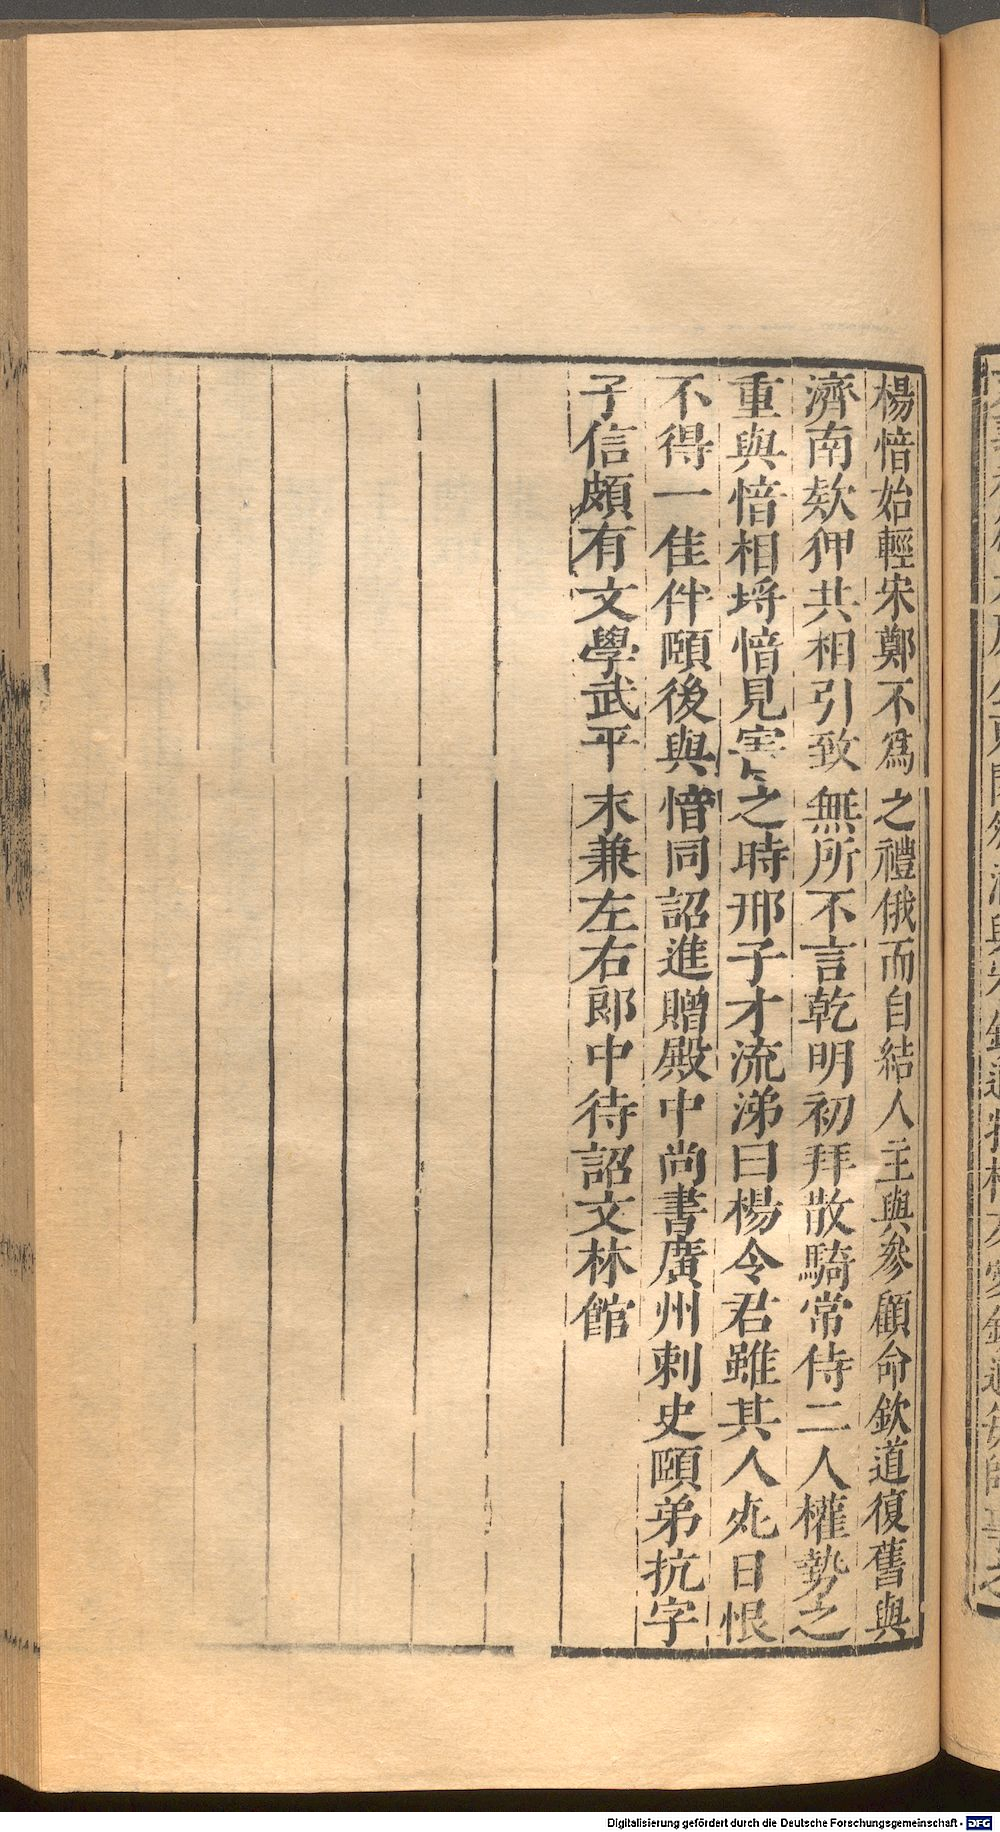 楊愔始輕宋鄭不爲之禮俄而自結人主與參顧命欽道復舊與
濟南欵狎共相引致無所不言乾明初拜散騎常侍二人權勢之
重與愔相埒愔見害之時邢子才流涕曰楊令君雖其人死日恨
不得一佳伴頤後與愔同詔進贈殿中尚書廣州刺史頤弟抗字
子信頗有文學武平末兼左右郎中待詔文林館
Digitalisierung gefördert durch die Deutsche Forschungsgemeinschaft - DFG